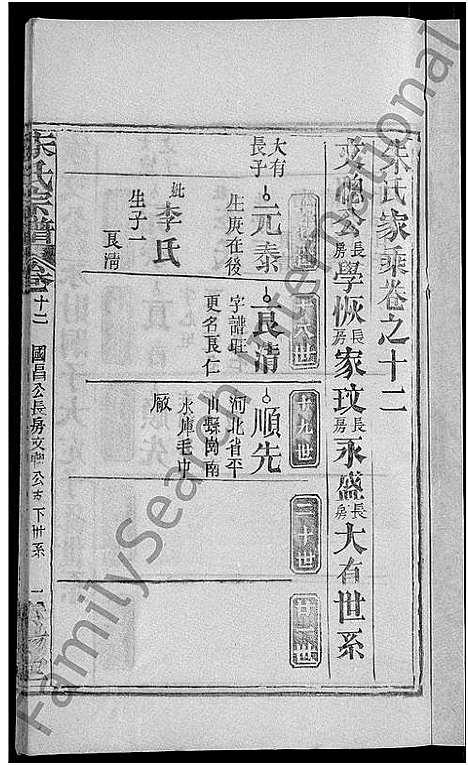 朱氏家乘卷之十二
文聰公長房學恢長房家玟長房永盛長房大有世系
十八世
十九世
二十世
廿一世
大有長子
元泰
生庚在後
妣李氏
生子一
良清
良清
字譜旺
更名良仁
順先
河北省平
山縣崗南
水庫毛中
廠
朱氏宗譜
卷十二
國昌公長房文聰公支下世系
FamilySearch International